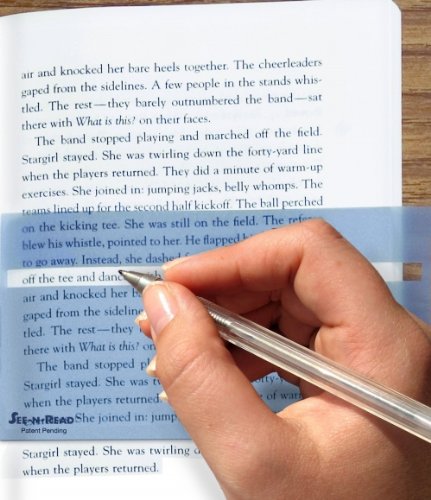 air and knocked her bare heels together. The cheerleaders
gaped from the sidelines. A few people in the stands whis-
tled. The rest—they barely outnumbered the band—sat
there with What is this? on their faces.
The band stopped playing and marched off the field.
Stargirl stayed. She was twirling down the forty-yard line
when the players returned. They did a minute of warm-up
exercises. She joined in: jumping jacks, belly whomps. The
teams lined up for the second half kickoff. The ball perched
on the kicking tee. She was still on the field. The referee
blew his whistle, pointed to her. He flapped
to go away. Instead, she dashed
off the tee and
air and knocked her
gaped from the sideline
tled. The rest—they
there with What is this? on
The band stopped
Stargirl stayed. She was
when the players returned
exercises. She joined in:
SEE-N-READ
Patent Pending
Stargirl stayed. She was twirling
when the players returned.